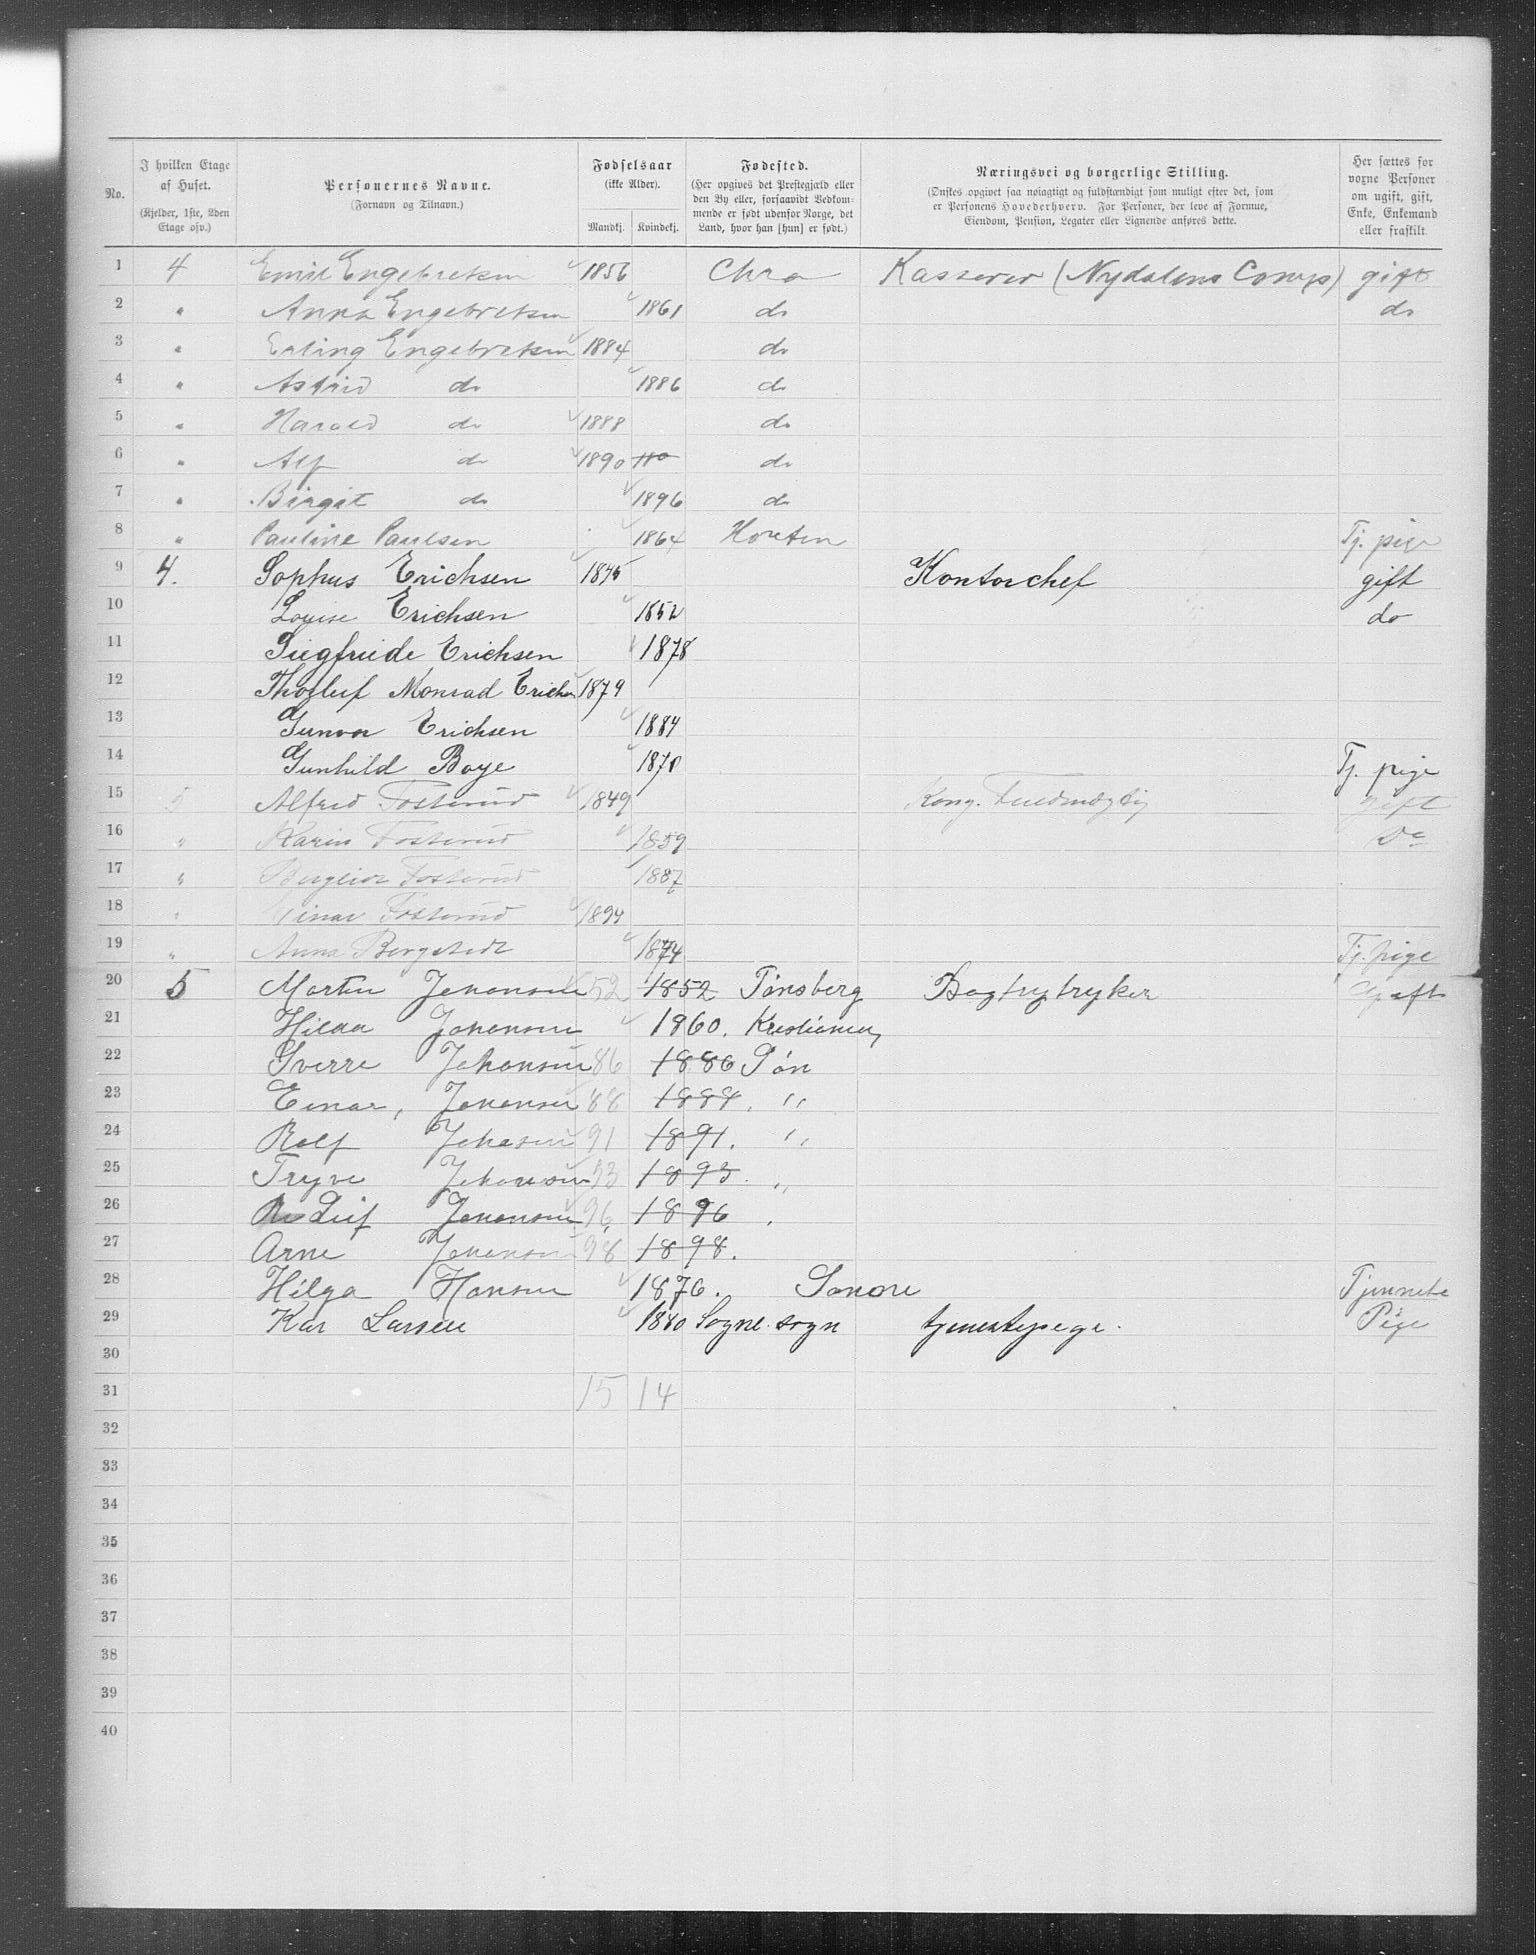 No.
I hvilken Etage af Huset.
(Kjelder, 1ste, 2den Etage osv.)
Personernes Navne.
(Fornavn og Tilnavn.)
Fødselsaar
(ikke Alder).
Mandkj. Kvindekj.
Fødested.
(Her opgives det Prestegjæld eller den By eller, forsaavidt Vedkommende er født udenfor Norge, det Land, hvor han [hun] er født.)
Næringsvei og borgerlige Stilling.
(Ønskes opgivet saa nøiagtigt og fuldstændigt som muligt efter det, som er Personens Hovederhverv. For Personer, der leve af Formue, Eiendom, Pension, Legater eller Lignende anføres dette.
Her sættes for voxne Personer om ugift, gift, Enke, Enkemand eller fraskilt.
1 4 Emil Engebretsen 1856 Chra Kasserer (Nydalens Comp) gift
2 " Anna Engebretsen 1861 do do
3 " Erling Engebretsen 1884 do
4 " Astrid do 1886 do
5 " Harald do 1888 do
6 " Alf do 1890 do
7 " Birgit do 1896 do
8 " Pauline Paulsen 1864 Horten Tj. pige
9 4. Sophus Erichsen 1845 Kontorchef gift
10 Louise Erichsen 1852 do
11 Siegfriede Erichsen 1878
12 Thorleif Monrad Erichsen 1879
13 Gunvor Erichsen 1884
14 Gunhild Boye 1870 Tj. pige
15 5 Alfred Fosterud 1849 Kong. Fuldmægtig gift
16 " Karin Fosterud 1859 do
17 " Bergliot Fosterud 1887
18 " Einar Fosterud 1894
19 " Anna Bergstedt 1874 Tj. pige
20 5 Martin Johansen 52 1852 Tønsberg Bogtrytryker Gift
21 Hilda Johansen 1860. Kristiania
22 Sverre Johansen 86 1886 Tøn
23 Einar, Johansen 88 1888. "
24 Rolf Johasen 91 1891. "
25 Tryve Johansen 93 1893. "
26 Leif Johansen 96 1896
27 Arne Johansen 98 1898.
28 Hilga Hansen 1876. Sandre Tjennete
29 Kar Larsen 1880 Sogne sogn tjenestepege. Pige
30
31 15 14
32
33
34
35
36
37
38
39
40